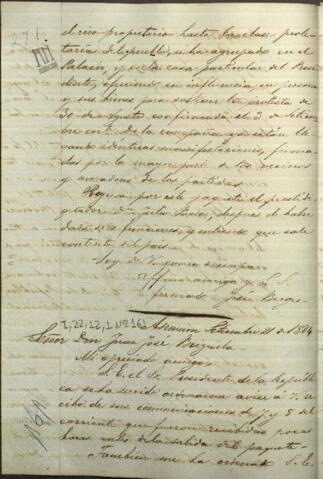 271.
el rico propietario hasta la clase prole-
taria del pueblo, se ha agrupado en el
Palacio, y en la casa particular del Presi-
dente, ofreciendo su influencia, su persona
y sus bienes para sostener la protesta de
30 de Agosto confirmada el 3 de Setiem-
bre corte. De la campaña ya están lle-
gando identicas manifestaciones, firma-
das por la mayor parte de los vecinos
y moradores de los partidos.
Regresa por este paquete el prestidi-
gitador después de haber
dado sus funciones, y entiendo que sale
contento del pais.
Soy de V. como siempre
affmo amigo y S. S.
firmado José Berges
I,22,12,1 Nº 161
Asuncion Setiembre 21 de 1864
Señor Don Juan José Brizuela
Mi apreciado amigo:
S. E. el Sr. Presidente de la Republi-
ca se ha servido ordenarme avise á V. re-
cibo de sus comunicaciones de 7 y 8 del
corriente que fueron recibidas pocas
horas antes de la salida del paquete.
Tambien me ha ordenado S. E.